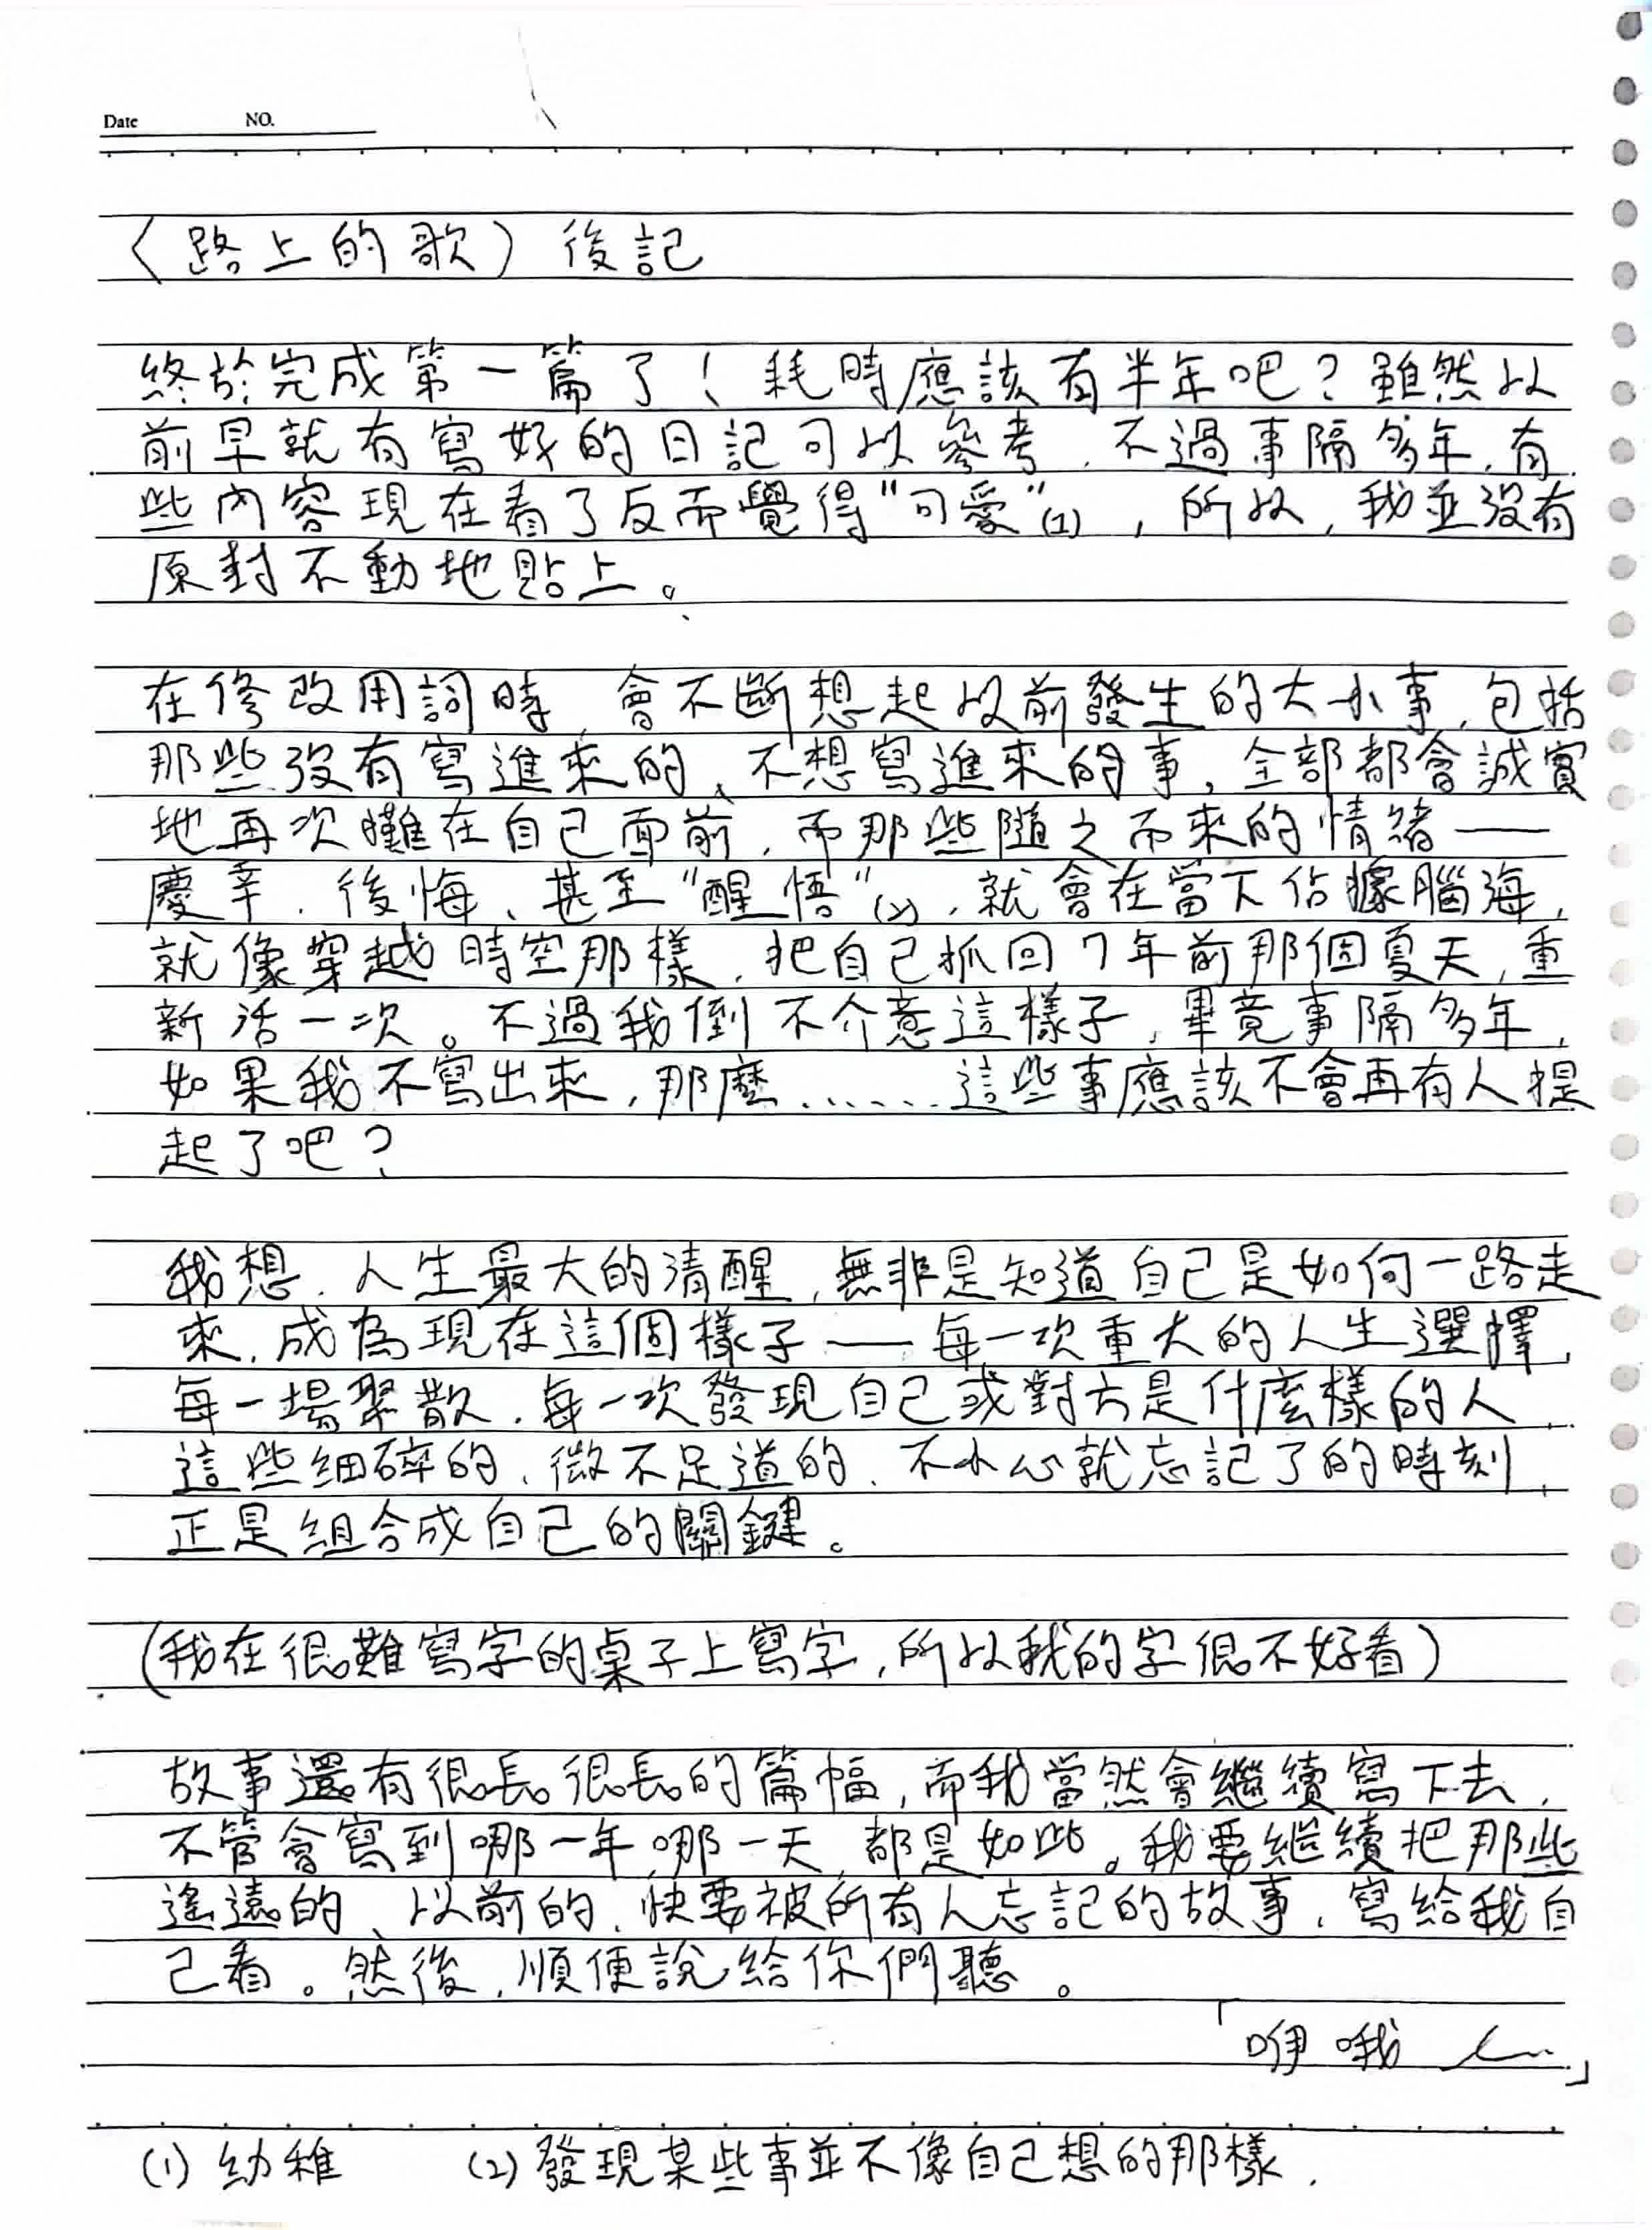 Date NO.
〈路上的歌〉後記
終於完成第一篇了！耗時應該有半年吧？雖然以
前早就有寫好的日記可以參考，不過事隔多年，有
些內容現在看了反而覺得"可愛"(1)，所以，我並沒有
原封不動地貼上。
在修改用詞時，會不斷想起以前發生的大小事，包括
那些沒有寫進來的、不想寫進來的事，全部都會誠實
地再次攤在自己面前，而那些隨之而來的情緒——
慶幸、後悔、甚至"醒悟"(2)，就會在當下佔據腦海，
就像穿越時空那樣，把自己抓回7年前那個夏天，重
新活一次。不過我倒不介意這樣子，畢竟事隔多年，
如果我不寫出來，那麼……這些事應該不會再有人提
起了吧？
我想，人生最大的清醒，無非是知道自己是如何一路走
來，成為現在這個樣子——每一次重大的人生選擇，
每一場聚散，每一次發現自己或對方是什麼樣的人，
這些細碎的、微不足道的、不小心就忘記了的時刻，
正是組合成自己的關鍵。
(我在很難寫字的桌子上寫字，所以我的字很不好看)
故事還有很長很長的篇幅，而我當然會繼續寫下去，
不管會寫到哪一年，哪一天，都是如此。我要繼續把那些
遙遠的、以前的、快要被所有人忘記的故事，寫給我自
己看。然後，順便說給你們聽。
「咿哦 」
(1) 幼稚 (2) 發現某些事並不像自己想的那樣．